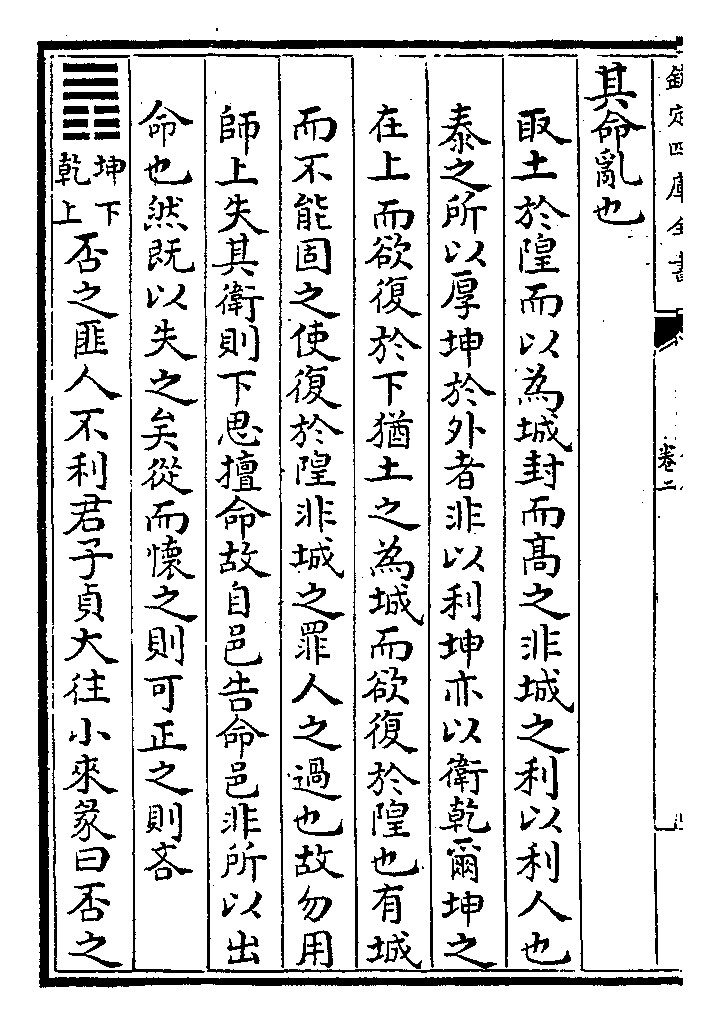 欽定四庫全書
卷二
其命亂也
取土於隍而以為城封而髙之非城之利以利人也
泰之所以厚坤於外者非以利坤亦以衛乾爾坤之
在上而欲復於下猶土之為城而欲復於隍也有城
而不能固之使復於隍非城之罪人之過也故勿用
師上失其衛則下思擅命故自邑告命邑非所以出
命也然既以失之矣從而懷之則可正之則吝
坤下
乾上
否之匪人不利君子貞大往小來彖曰否之